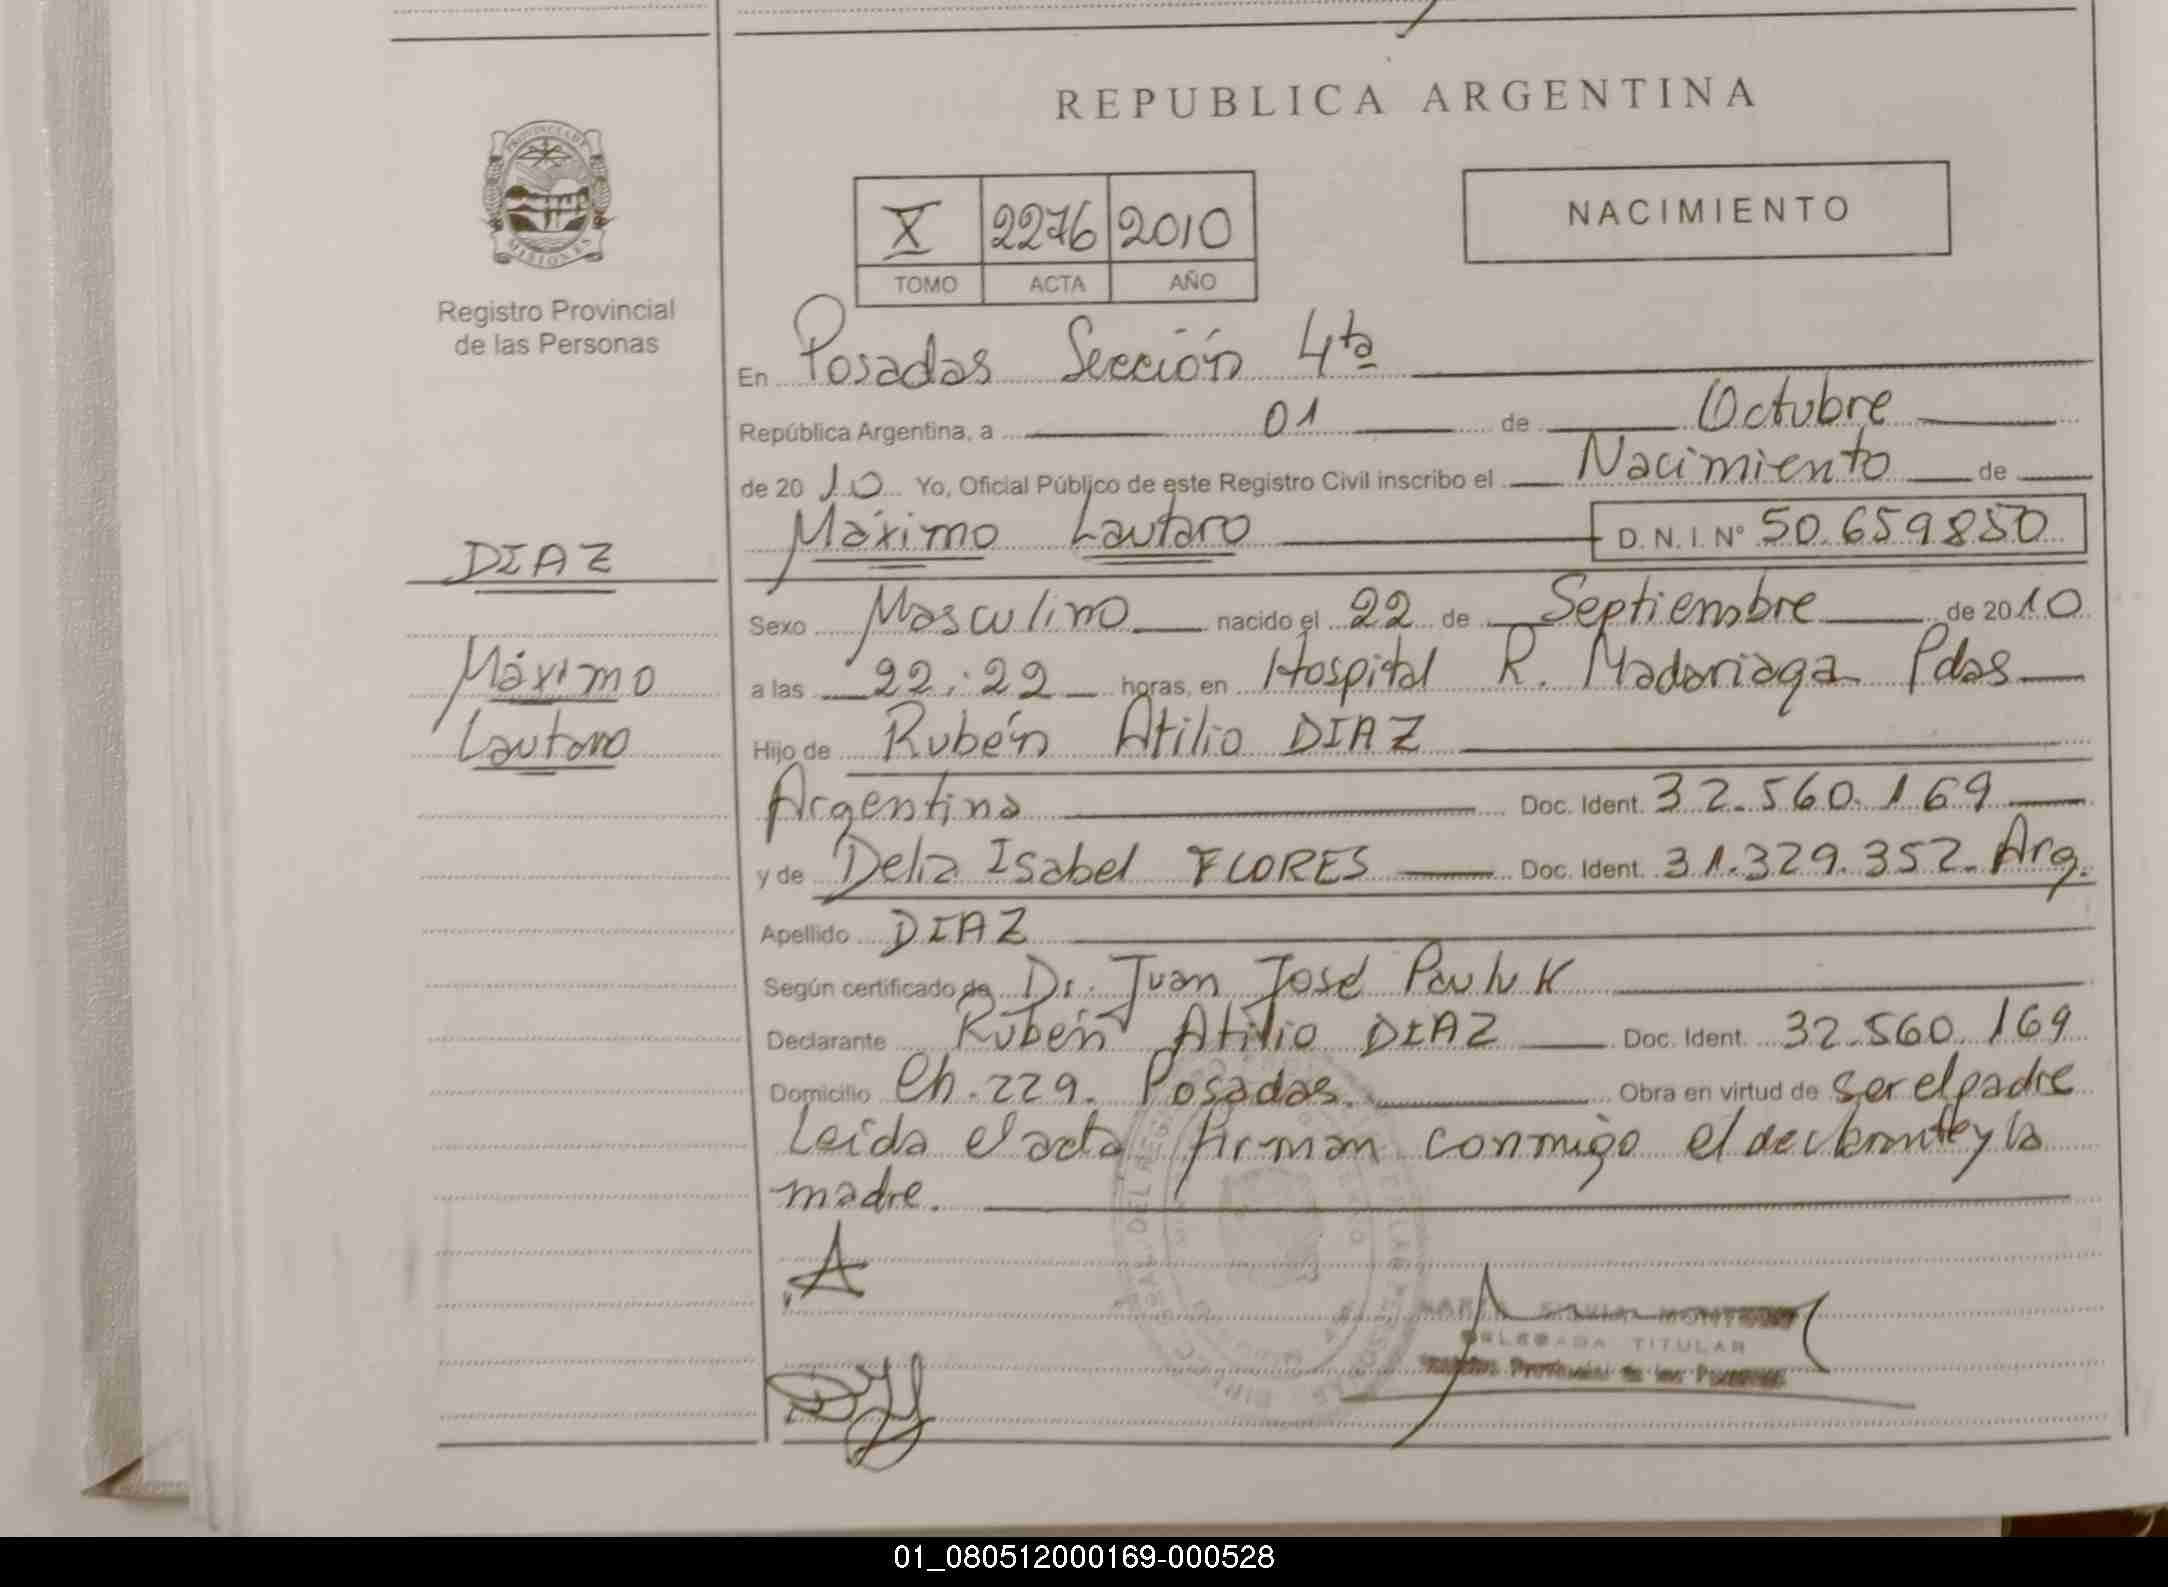 REPUBLICA ARGENTINA
PROVINCIA DE
MISIONES
Registro Provincial
de las Personas
X 2276 2010
TOMO ACTA AÑO
NACIMIENTO
En Posadas Sección 4ta
República Argentina, a 01 de Octubre
de 2010 Yo, Oficial Público de este Registro Civil inscribo el Nacimiento de
Máximo Lautaro D.N.I. Nº 50.659.850
DIAZ
Máximo
Lautaro
Sexo Masculino nacido el 22 de Septiembre de 2010
a las 22:22 horas, en Hospital R. Madariaga Pdas
Hijo de Rubén Atilio DIAZ
Argentina Doc. Ident. 32.560.169
y de Delia Isabel FLORES Doc. Ident. 31.329.352. Arg.
Apellido DIAZ
Según certificado de Dr. Juan José
Declarante Rubén Atilio DIAZ Doc. Ident. 32.560.169
Domicilio Ch. 229. Posadas. Obra en virtud de ser el padre
Leída el acta firman conmigo el declarante y la
madre.
DELEGADA TITULAR
Provincial de las Personas
01_080512000169-000528